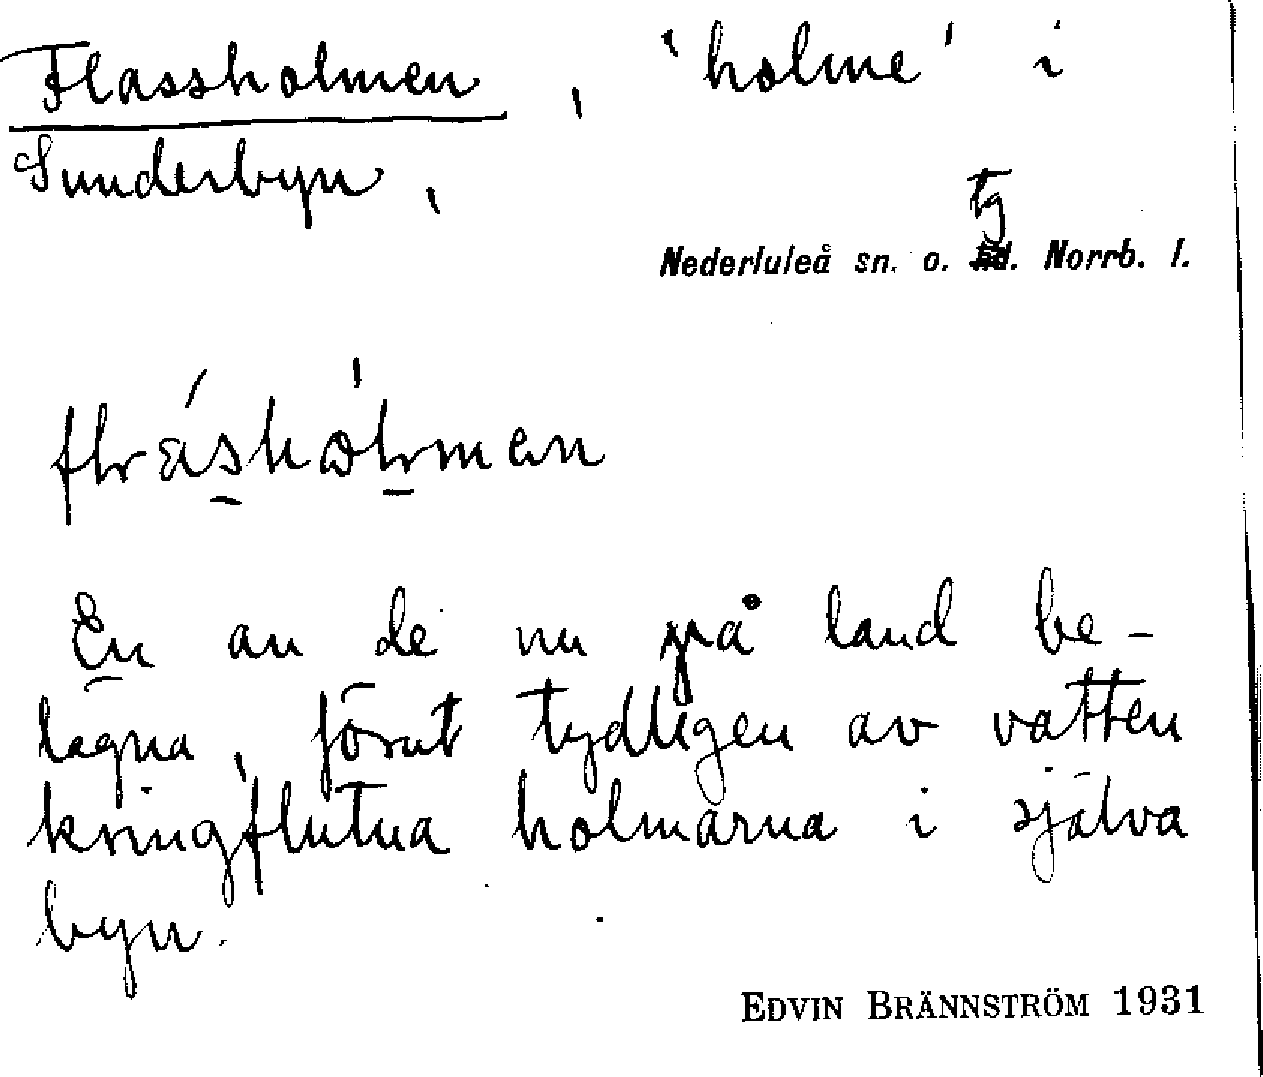 Flassholmen, 'holme' i
Sunderbyn,
tg
Nederluleå sn. o. hd. Norrb. l.
En av de nu på land be-
lägna, förut tydligen av vatten
kringflutna holmarna i själva
byn.
EDVIN BRÄNNSTRÖM 1931